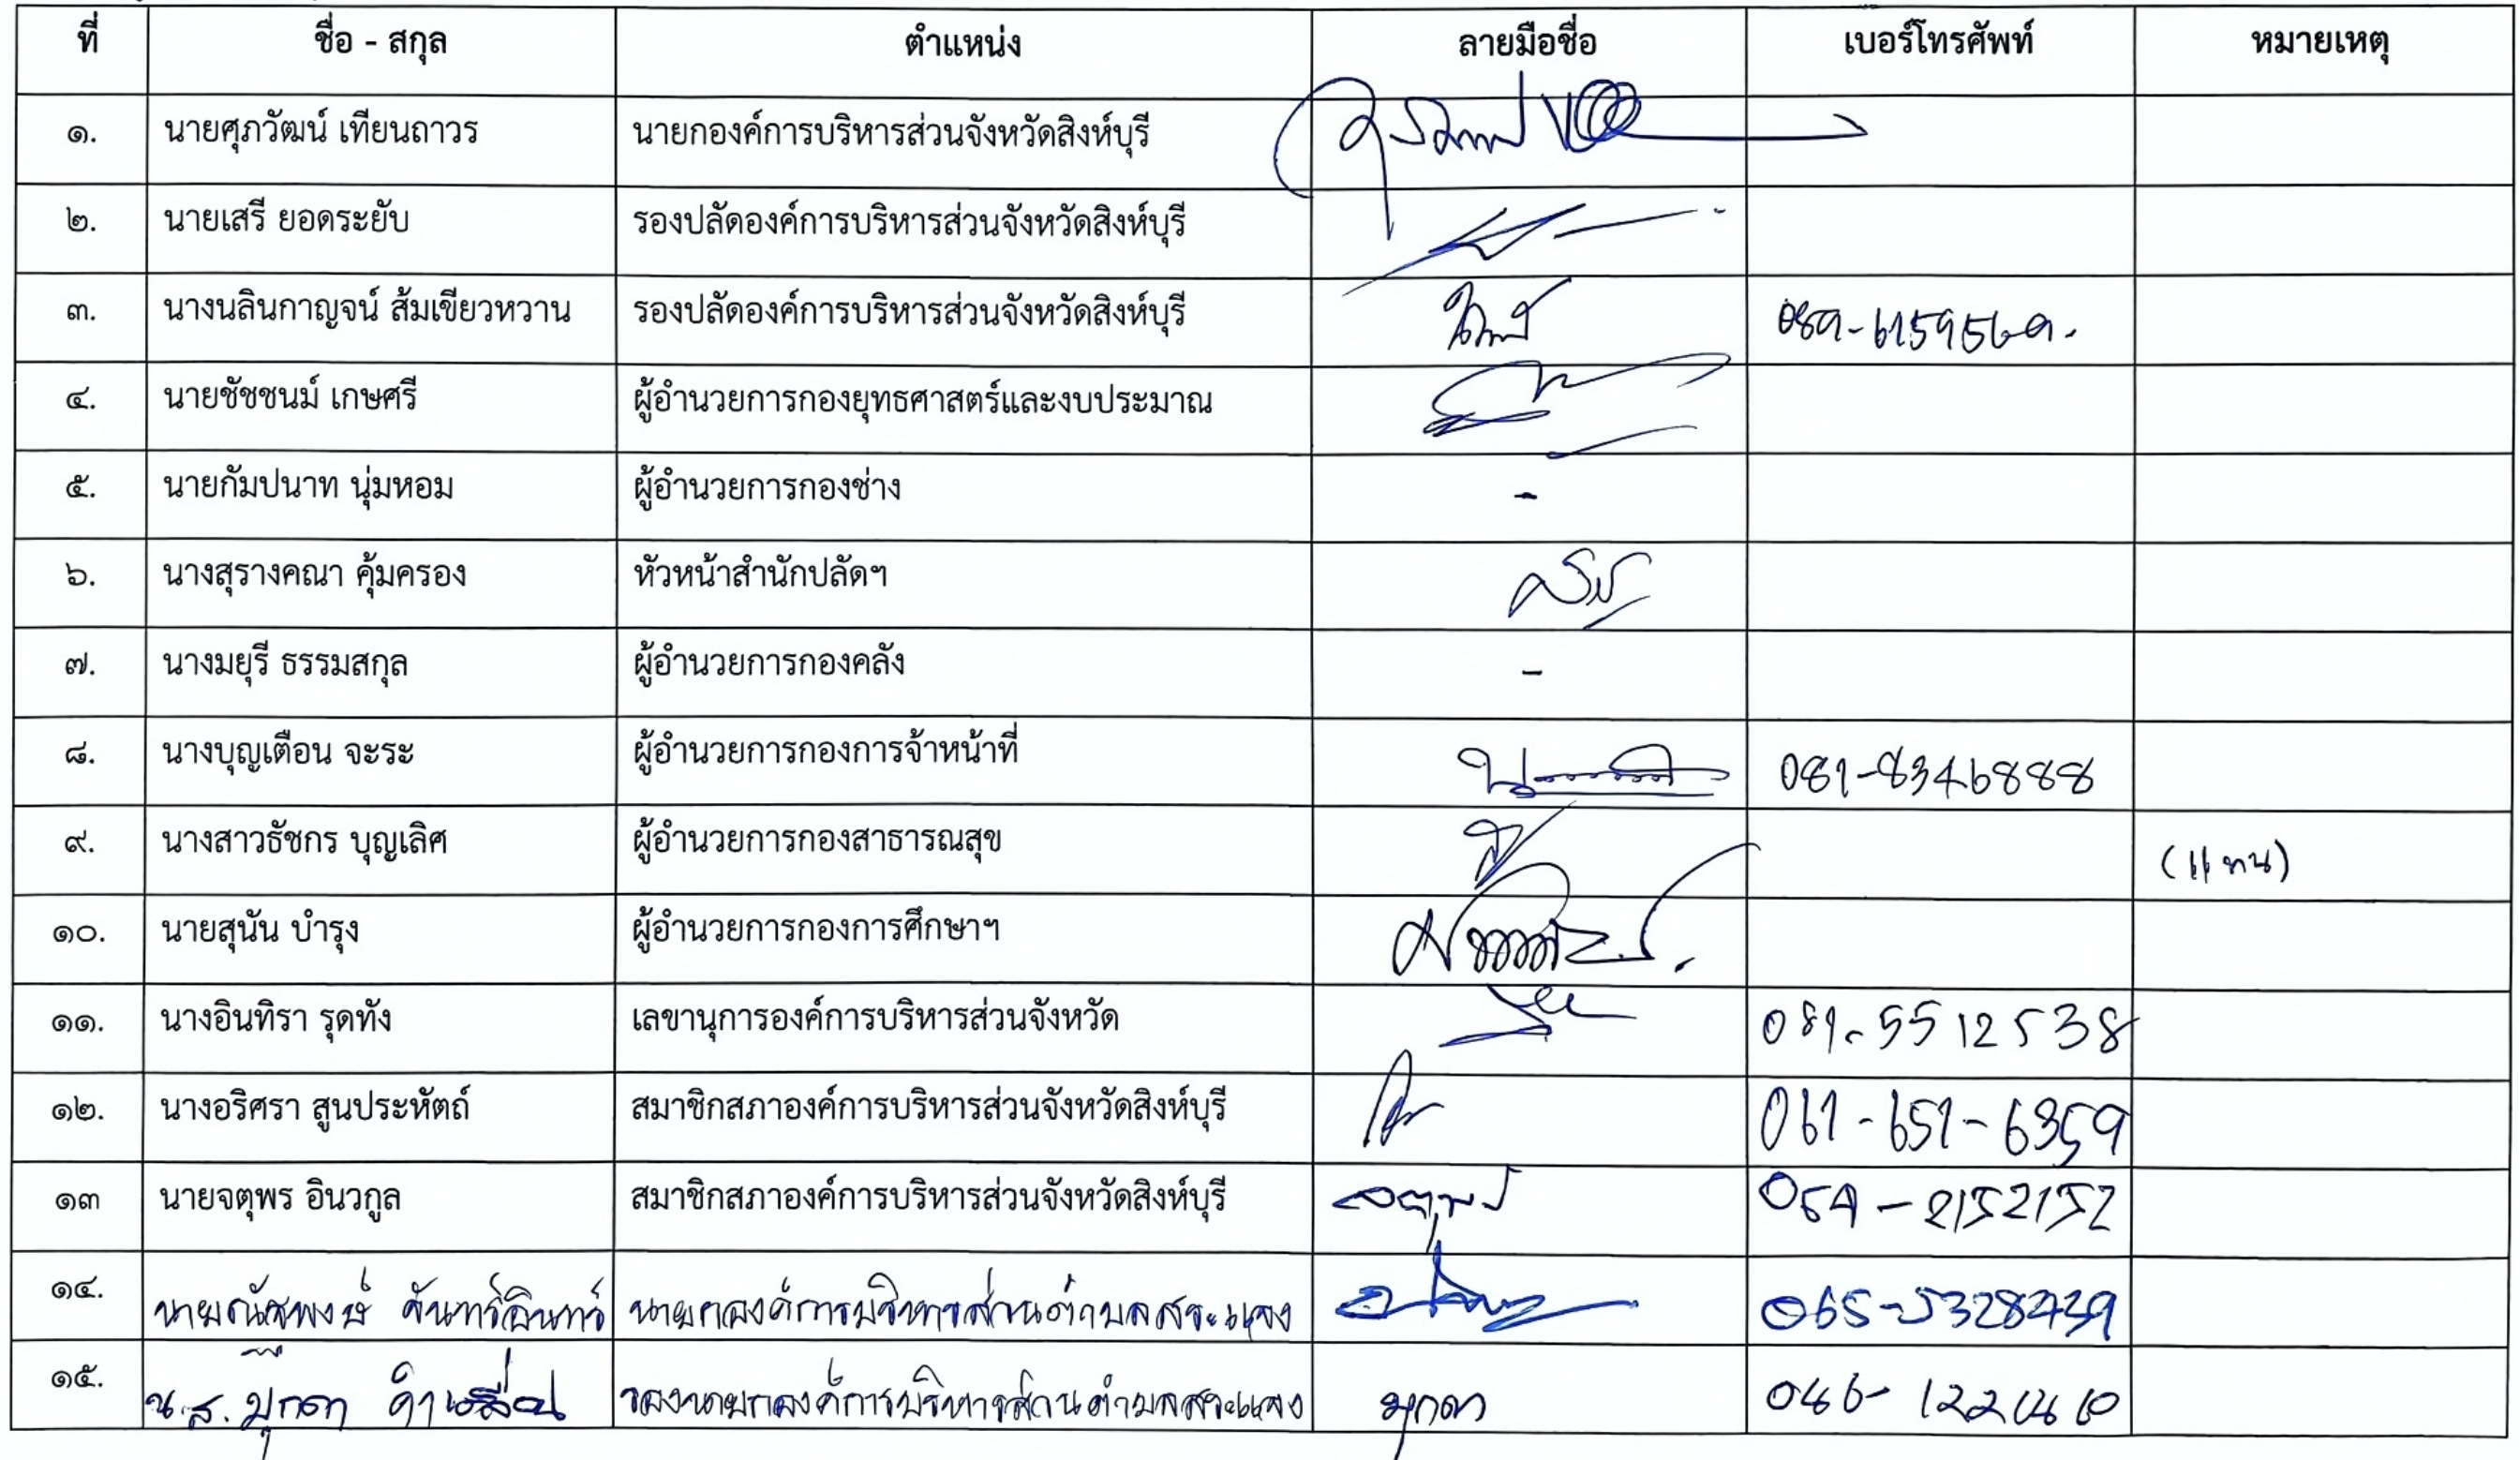 ที่ ชื่อ - สกุล ตำแหน่ง ลายมือชื่อ เบอร์โทรศัพท์ หมายเหตุ
๑. นายศุภวัฒน์ เทียนถาวร นายกองค์การบริหารส่วนจังหวัดสิงห์บุรี
๒. นายเสรี ยอดระยับ รองปลัดองค์การบริหารส่วนจังหวัดสิงห์บุรี
๓. นางนลินกาญจน์ ส้มเขียวหวาน รองปลัดองค์การบริหารส่วนจังหวัดสิงห์บุรี
๔. นายชัชชนม์ เกษศรี ผู้อำนวยการกองยุทธศาสตร์และงบประมาณ
๕. นายกัมปนาท นุ่มหอม ผู้อำนวยการกองช่าง -
๖. นางสุรางคณา คุ้มครอง หัวหน้าสำนักปลัดฯ
๗. นางมยุรี ธรรมสกุล ผู้อำนวยการกองคลัง -
๘. นางบุญเตือน จะระ ผู้อำนวยการกองการจ้าหน้าที่ 081-8346888
๙. นางสาวธัชกร บุญเลิศ ผู้อำนวยการกองสาธารณสุข (แทน)
๑๐. นายสุนัน บำรุง ผู้อำนวยการกองการศึกษาฯ
๑๑. นางอินทิรา รุดทัง เลขานุการองค์การบริหารส่วนจังหวัด 081-5512538
๑๒. นางอริศรา สูนประหัตถ์ สมาชิกสภาองค์การบริหารส่วนจังหวัดสิงห์บุรี 061-651-6359
๑๓ นายจตุพร อินวกูล สมาชิกสภาองค์การบริหารส่วนจังหวัดสิงห์บุรี จตุพร
๑๔. นายณัชพงษ์ จันทร์อินทร์ นายกองค์การบริหารส่วนตำบลสระแจง
๑๕. น.ส. มุกดา รองนายกองค์การบริหารส่วนตำบลสระแจง มุกดา